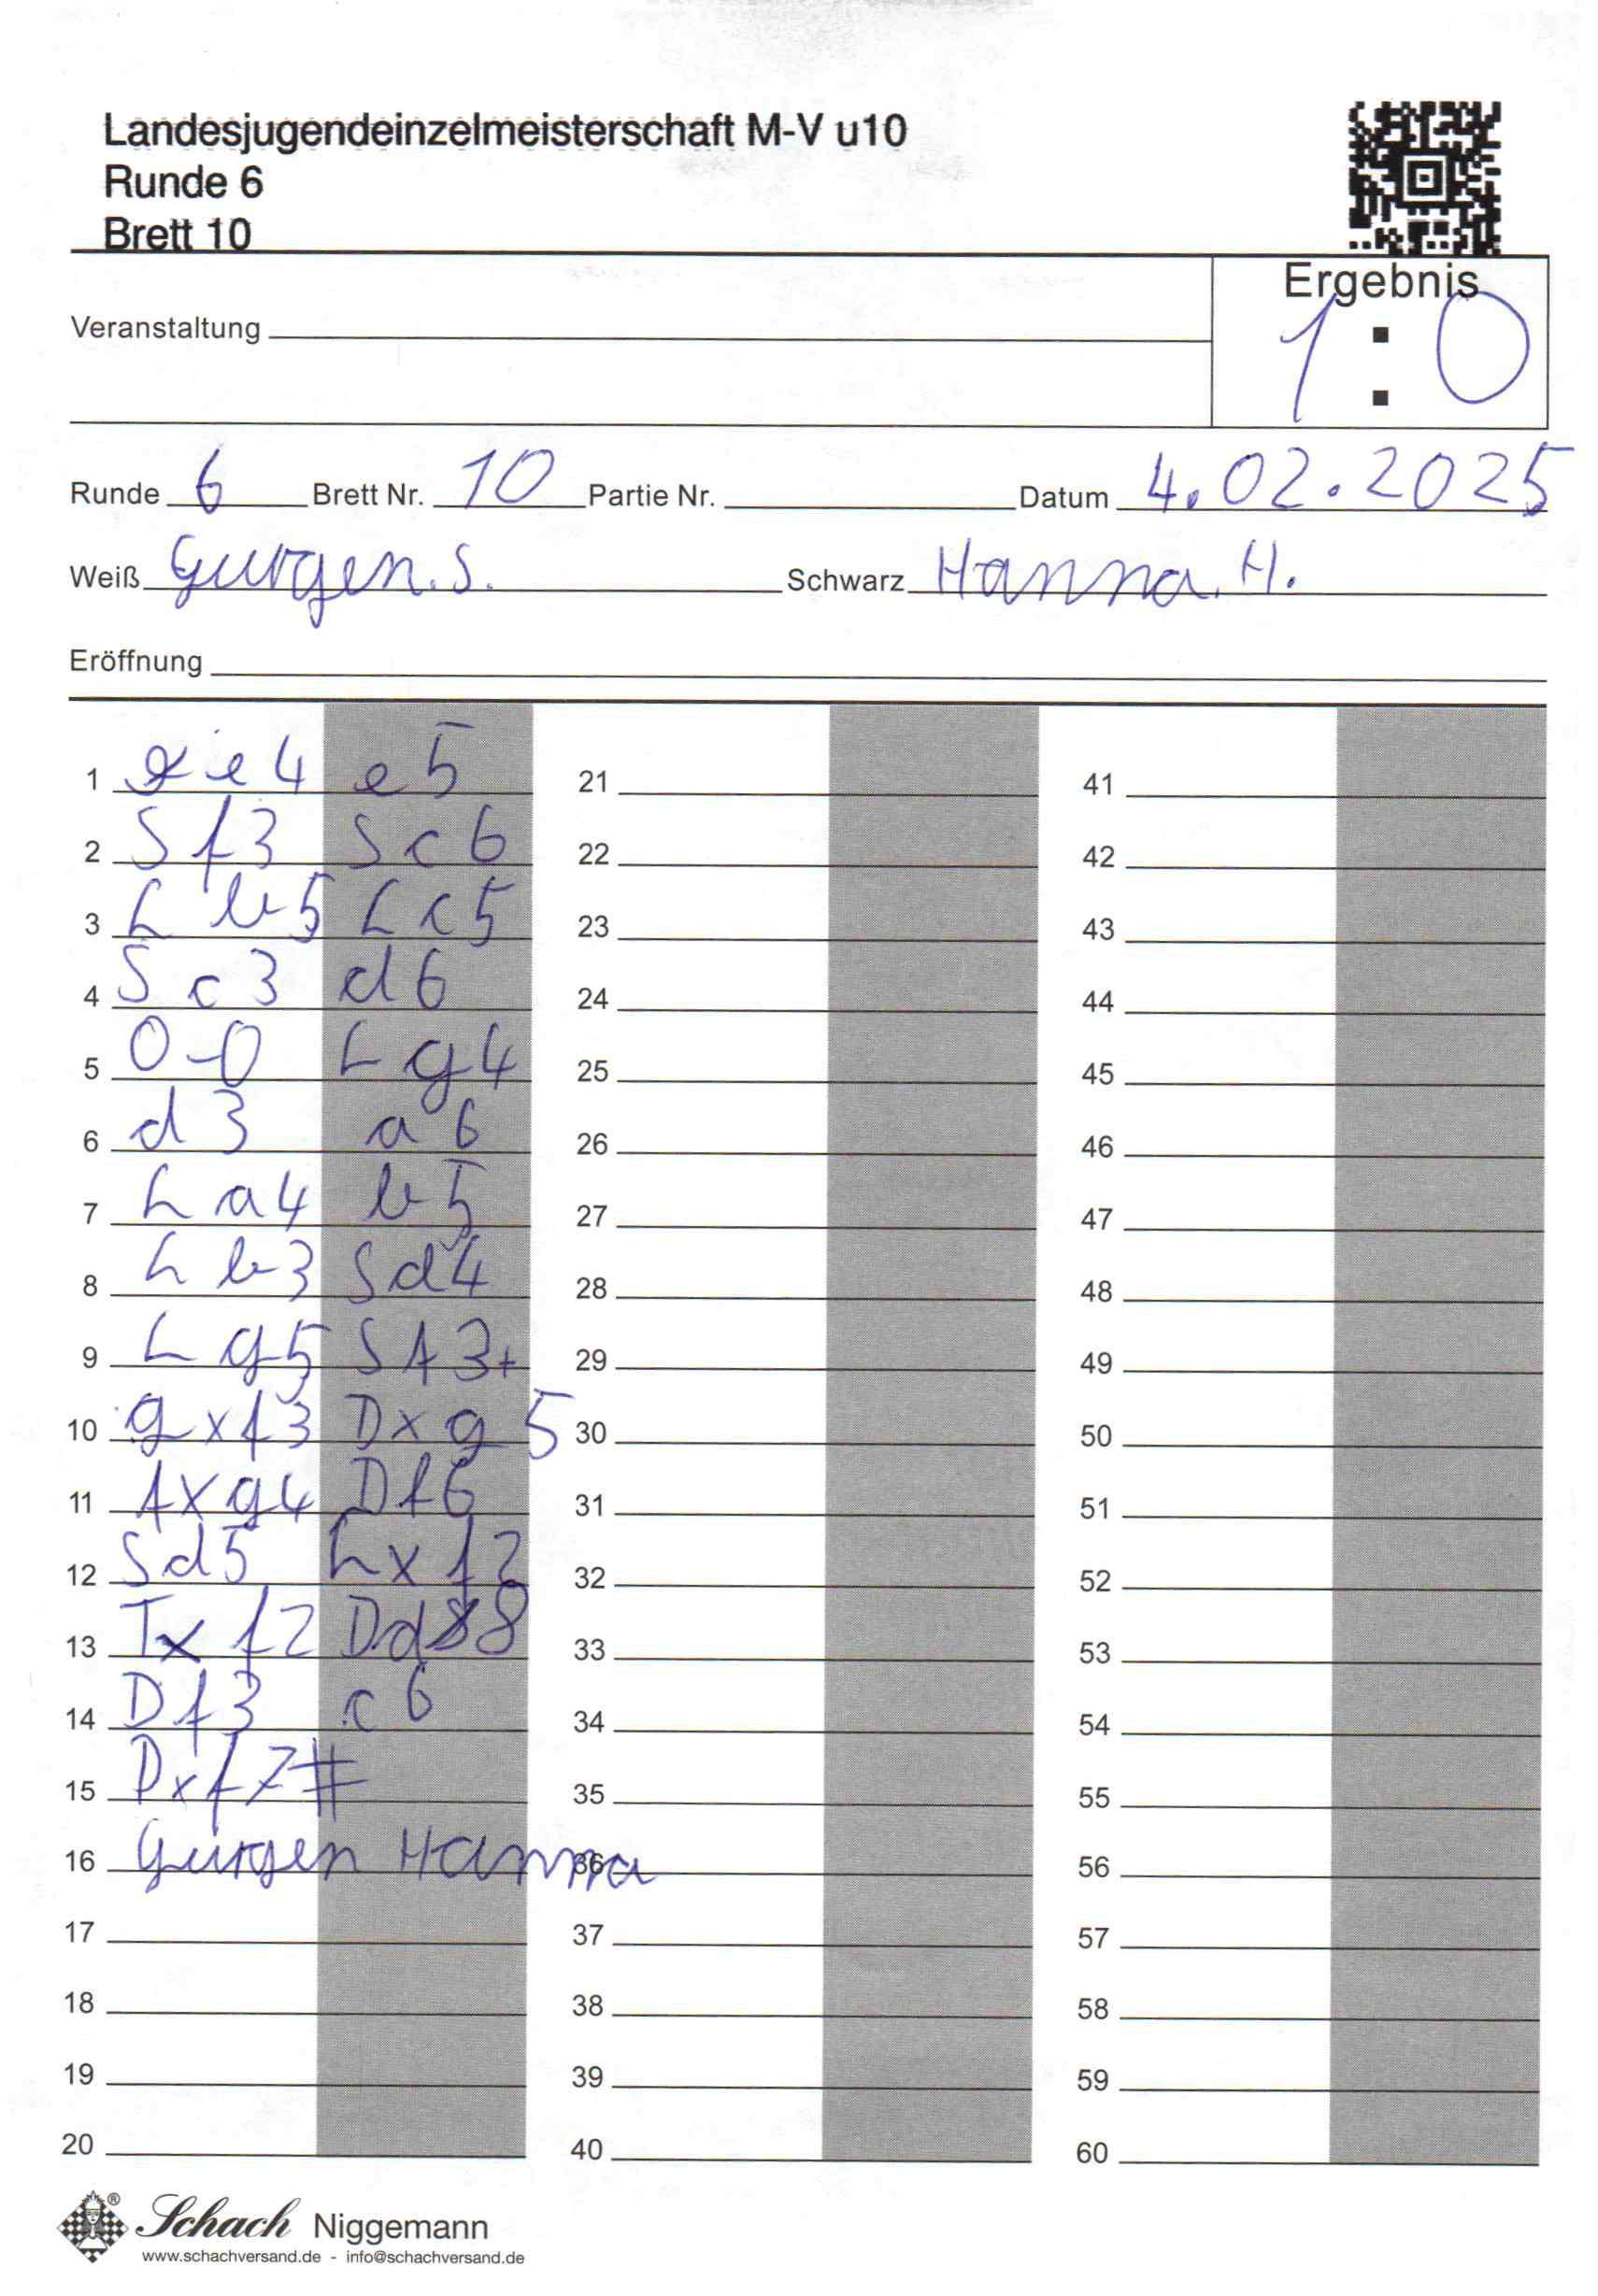 Landesjugendeinzelmeisterschaft M-V u10
Runde 6
Brett 10
Ergebnis
1 : 0
Veranstaltung
Runde 6 Brett Nr. 10 Partie Nr. Datum 4.02.2025
Weiß Gurgen.S. Schwarz Hanna.H.
Eröffnung
1 e4 e5
2 Sf3 Sc6
3 Lb5 Lc5
4 Sc3 d6
5 0-0 Lg4
6 d3 a6
7 La4 b5
8 Lb3 Sd4
9 Lg5 Sf3+
10 gxf3 Dxg5
11 fxg4 Df6
12 Sd5 Lxf2
13 Txf2 Dd8
14 Df3 c6
15 Dxf7#
16 Gurgen Hanna
17
18
19
20
21
22
23
24
25
26
27
28
29
30
31
32
33
34
35
36
37
38
39
40
41
42
43
44
45
46
47
48
49
50
51
52
53
54
55
56
57
58
59
60
® Schach Niggemann
www.schachversand.de - info@schachversand.de